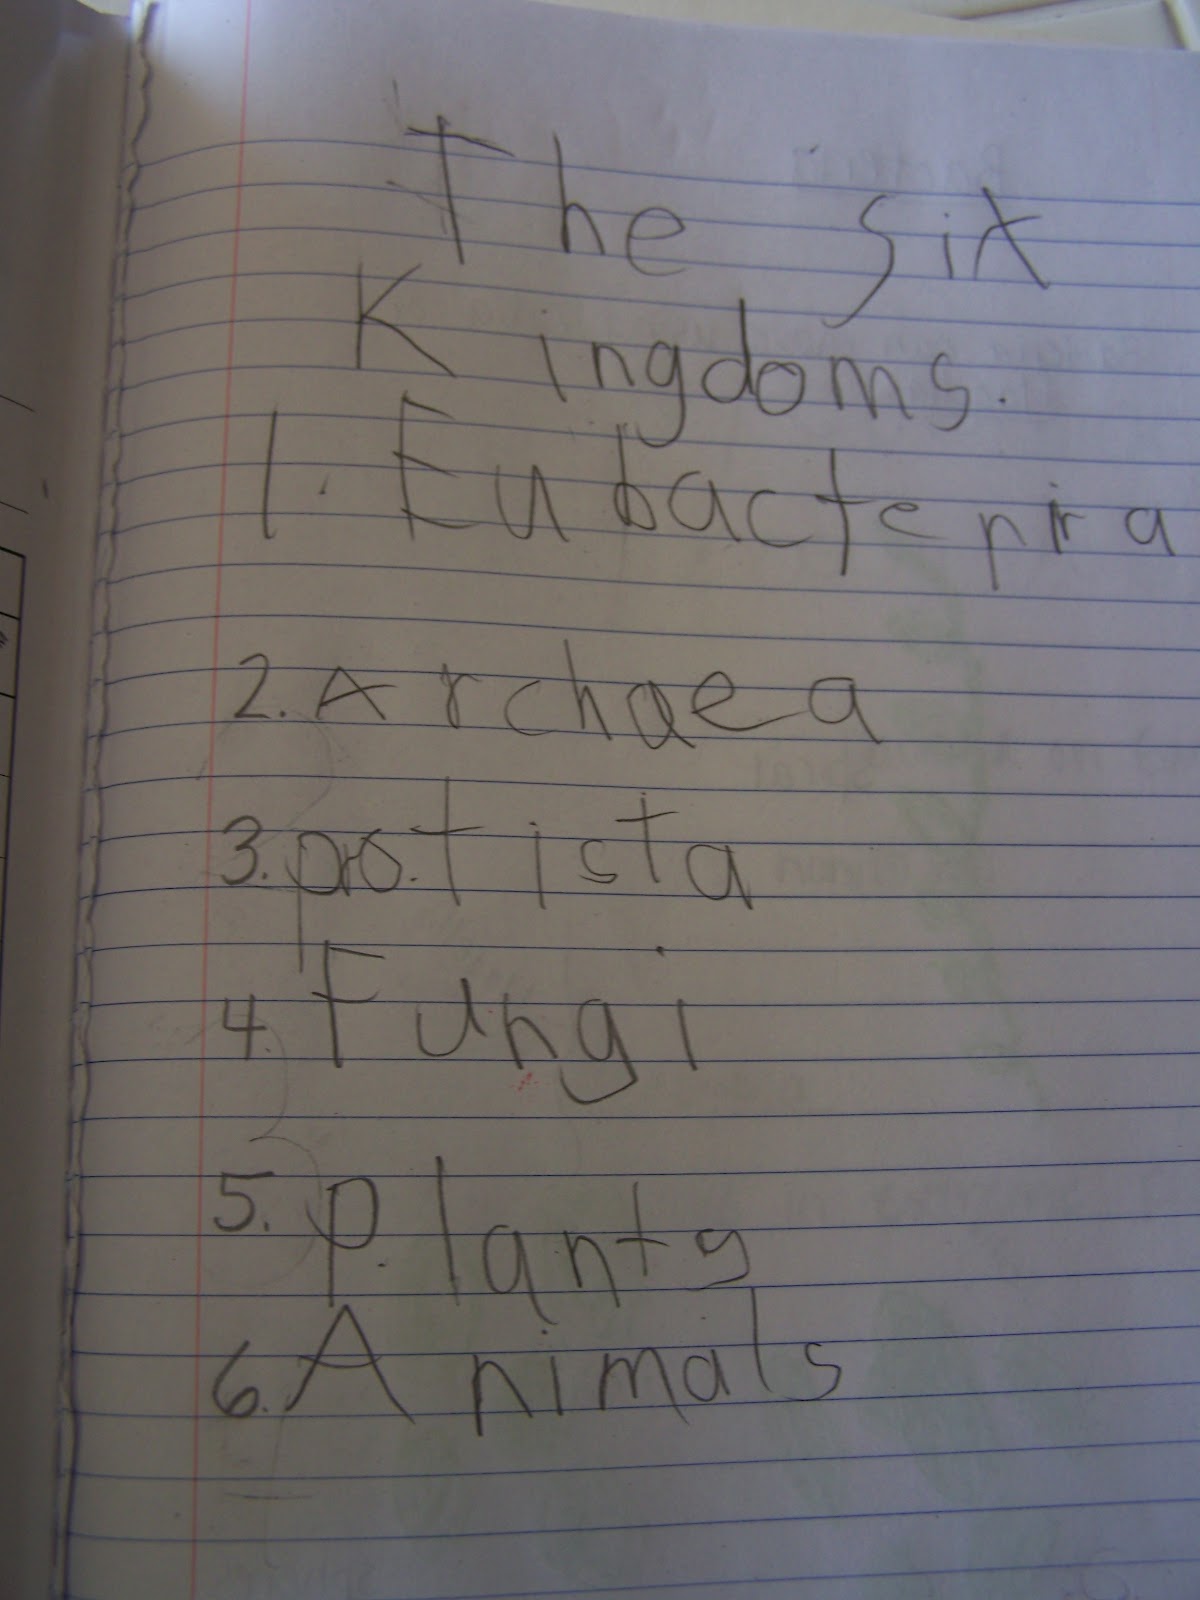 The six
Kingdoms.
1. Eubacterira
2. Archaea
3. protista
4. Fungi
5. Plants
6. Animals